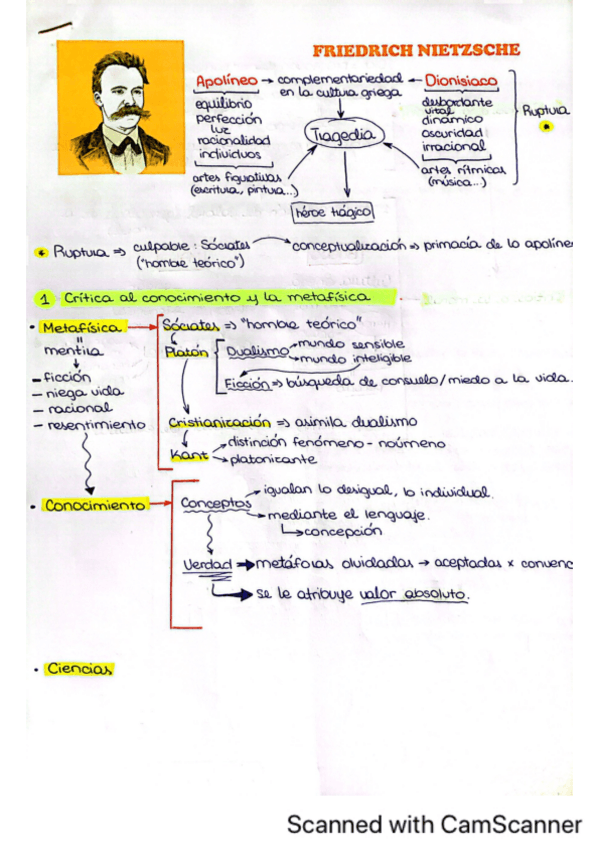 FRIEDRICH NIETZSCHE
Apolíneo → complementariedad ← Dionisiaco
en la cultura griega
equilibrio
perfección
luz
racionalidad
individuos
artes figurativas
(escritura, pintura...)
Tragedia
héroe trágico
desbordante
vital
dinámico
oscuridad
irracional
artes rítmicas
(música...)
Ruptura
Ruptura ⇒ culpable: Sócrates → conceptualización ⇒ primacía de lo apolíne
("hombre teórico")
1 Crítica al conocimiento y la metafísica
• Metafísica → Sócrates ⇒ "hombre teórico"
mentira
– ficción
– niega vida
– racional
– resentimiento
Platón
Dualismo
mundo sensible
mundo inteligible
Ficción ⇒ búsqueda de consuelo/miedo a la vida.
Cristianización ⇒ asimila dualismo
Kant
distinción fenómeno - noúmeno
platonizante
• Conocimiento → Conceptos
igualan lo desigual, lo individual.
mediante el lenguaje.
concepción
Verdad → metáforas olvidadas → aceptadas x convenc
se le atribuye valor absoluto.
• Ciencias
Scanned with CamScanner